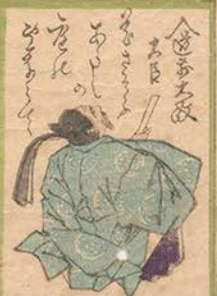 入道前太政
大臣
花さそふ
あらしの
庭の
雪ならて